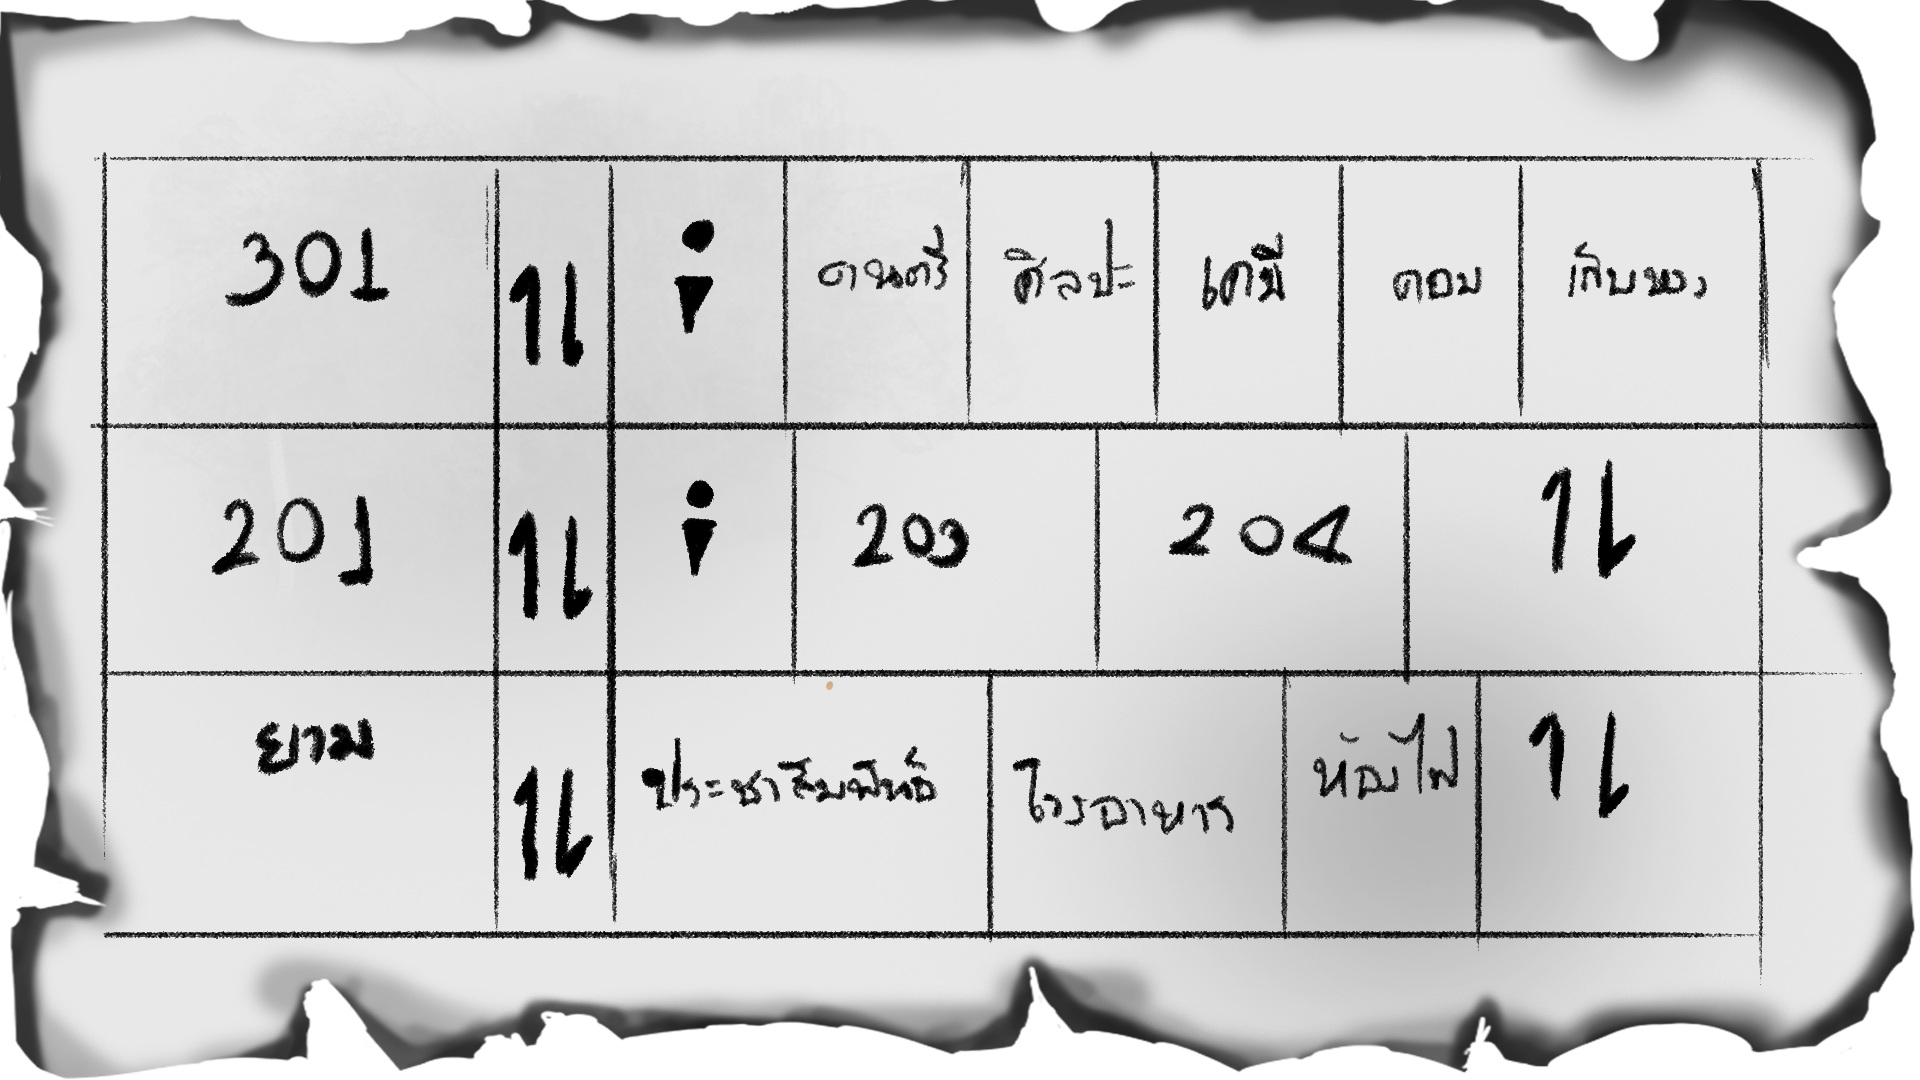 301 ดนตรี ศิลปะ เคมี คอม เก็บของ
201 203 204
ยาม ประชาสัมพันธ์ โรงอาหาร ห้องไฟ